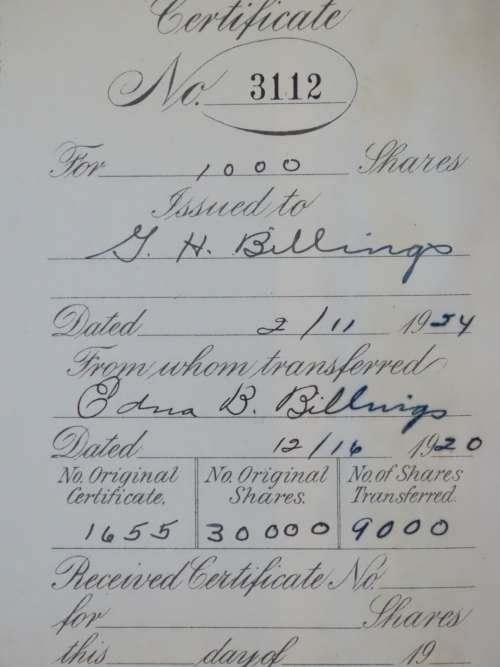 Certificate
No. 3112
For 1000 Shares
Issued to
G. H. Billings
Dated 2/11 1924
From whom transferred
Edna B. Billings
Dated 12/16 1920
No. Original Certificate. No. Original Shares. No. of Shares Transferred.
1655 30000 9000
Received Certificate No.
for Shares
this day of 19